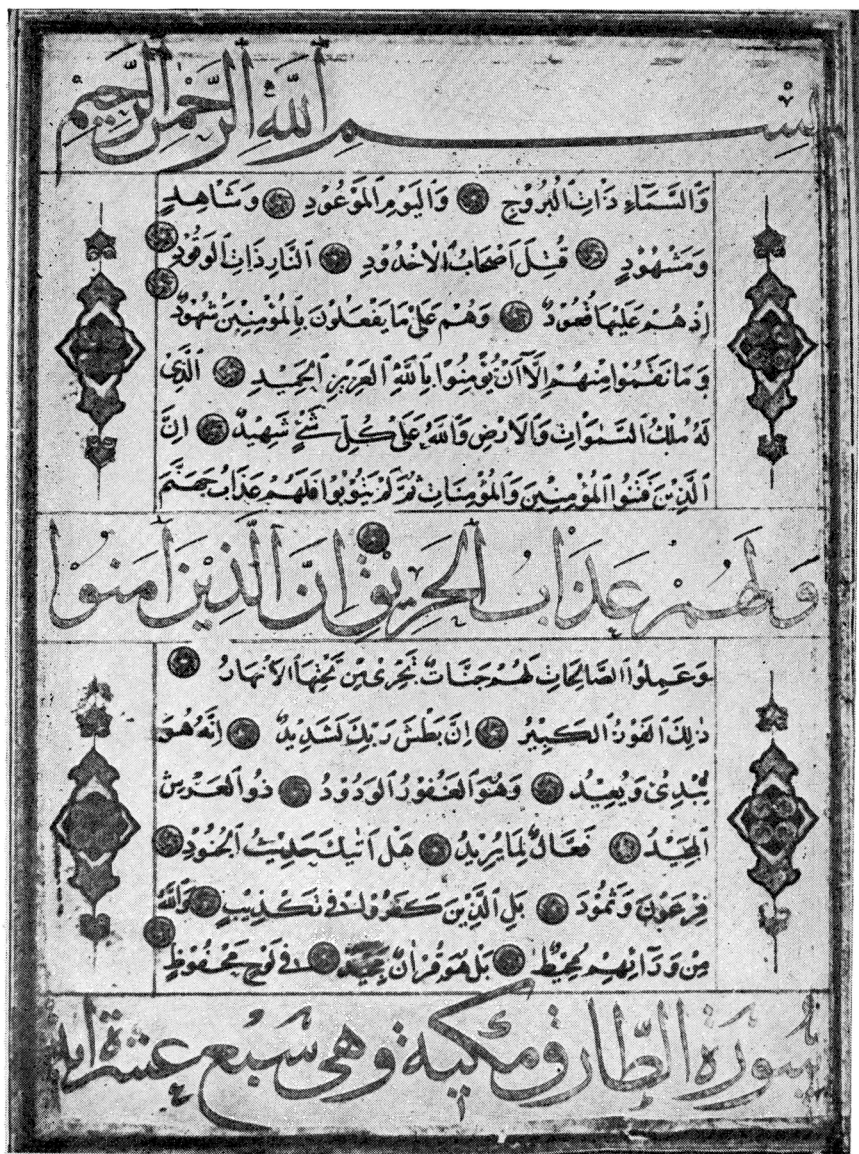 بِسْمِ ٱللَّهِ ٱلرَّحْمٰنِ ٱلرَّحِيمِ
وَالسَّمَآءِ ذَاتِ ٱلْبُرُوْجِ وَالْيَوْمِ الْمَوْعُوْدِ وَشَاهِدٍ
وَمَشْهُوْدٍ قُتِلَ اَصْحَابُ الْاُخْدُوْدِ اَلنَّارِ ذَاتِ الْوَقُوْدِ
اِذْ هُمْ عَلَيْهَا قُعُوْدٌ وَهُمْ عَلٰى مَا يَفْعَلُوْنَ بِالْمُؤْمِنِيْنَ شُهُوْدٌ
وَمَا نَقَمُوْا مِنْهُمْ اِلَّآ اَنْ يُؤْمِنُوْا بِاللّٰهِ الْعَزِيْزِ الْحَمِيْدِ اَلَّذِىْ
لَهُ مُلْكُ السَّمٰوَاتِ وَالْاَرْضِ وَاللّٰهُ عَلٰى كُلِّ شَىْءٍ شَهِيْدٌ اِنَّ
الَّذِيْنَ فَتَنُوا الْمُؤْمِنِيْنَ وَالْمُؤْمِنَاتِ ثُمَّ لَمْ يَتُوْبُوْا فَلَهُمْ عَذَابُ جَهَنَّمَ
وَلَهُمْ عَذَابُ الْحَرِيْقِ اِنَّ الَّذِيْنَ اٰمَنُوْا
وَعَمِلُوا الصَّالِحَاتِ لَهُمْ جَنَّاتٌ تَجْرِىْ مِنْ تَحْتِهَا الْاَنْهَارُ
ذٰلِكَ الْفَوْزُ الْكَبِيْرُ اِنَّ بَطْشَ رَبِّكَ لَشَدِيْدٌ اِنَّهُ هُوَ
يُبْدِئُ وَيُعِيْدُ وَهُوَ الْغَفُوْرُ الْوَدُوْدُ ذُو الْعَرْشِ
الْمَجِيْدُ فَعَّالٌ لِمَا يُرِيْدُ هَلْ اَتٰيكَ حَدِيْثُ الْجُنُوْدِ
فِرْعَوْنَ وَثَمُوْدَ بَلِ الَّذِيْنَ كَفَرُوْا فِىْ تَكْذِيْبٍ وَاللّٰهُ
مِنْ وَرَآئِهِمْ مُحِيْطٌ بَلْ هُوَ قُرْاٰنٌ مَجِيْدٌ فِىْ لَوْحٍ مَحْفُوْظٍ
سُوْرَةُ الطَّارِقِ مَكِّيَّة وَهِىَ سَبْعُ عَشْرَةَ اٰيَة